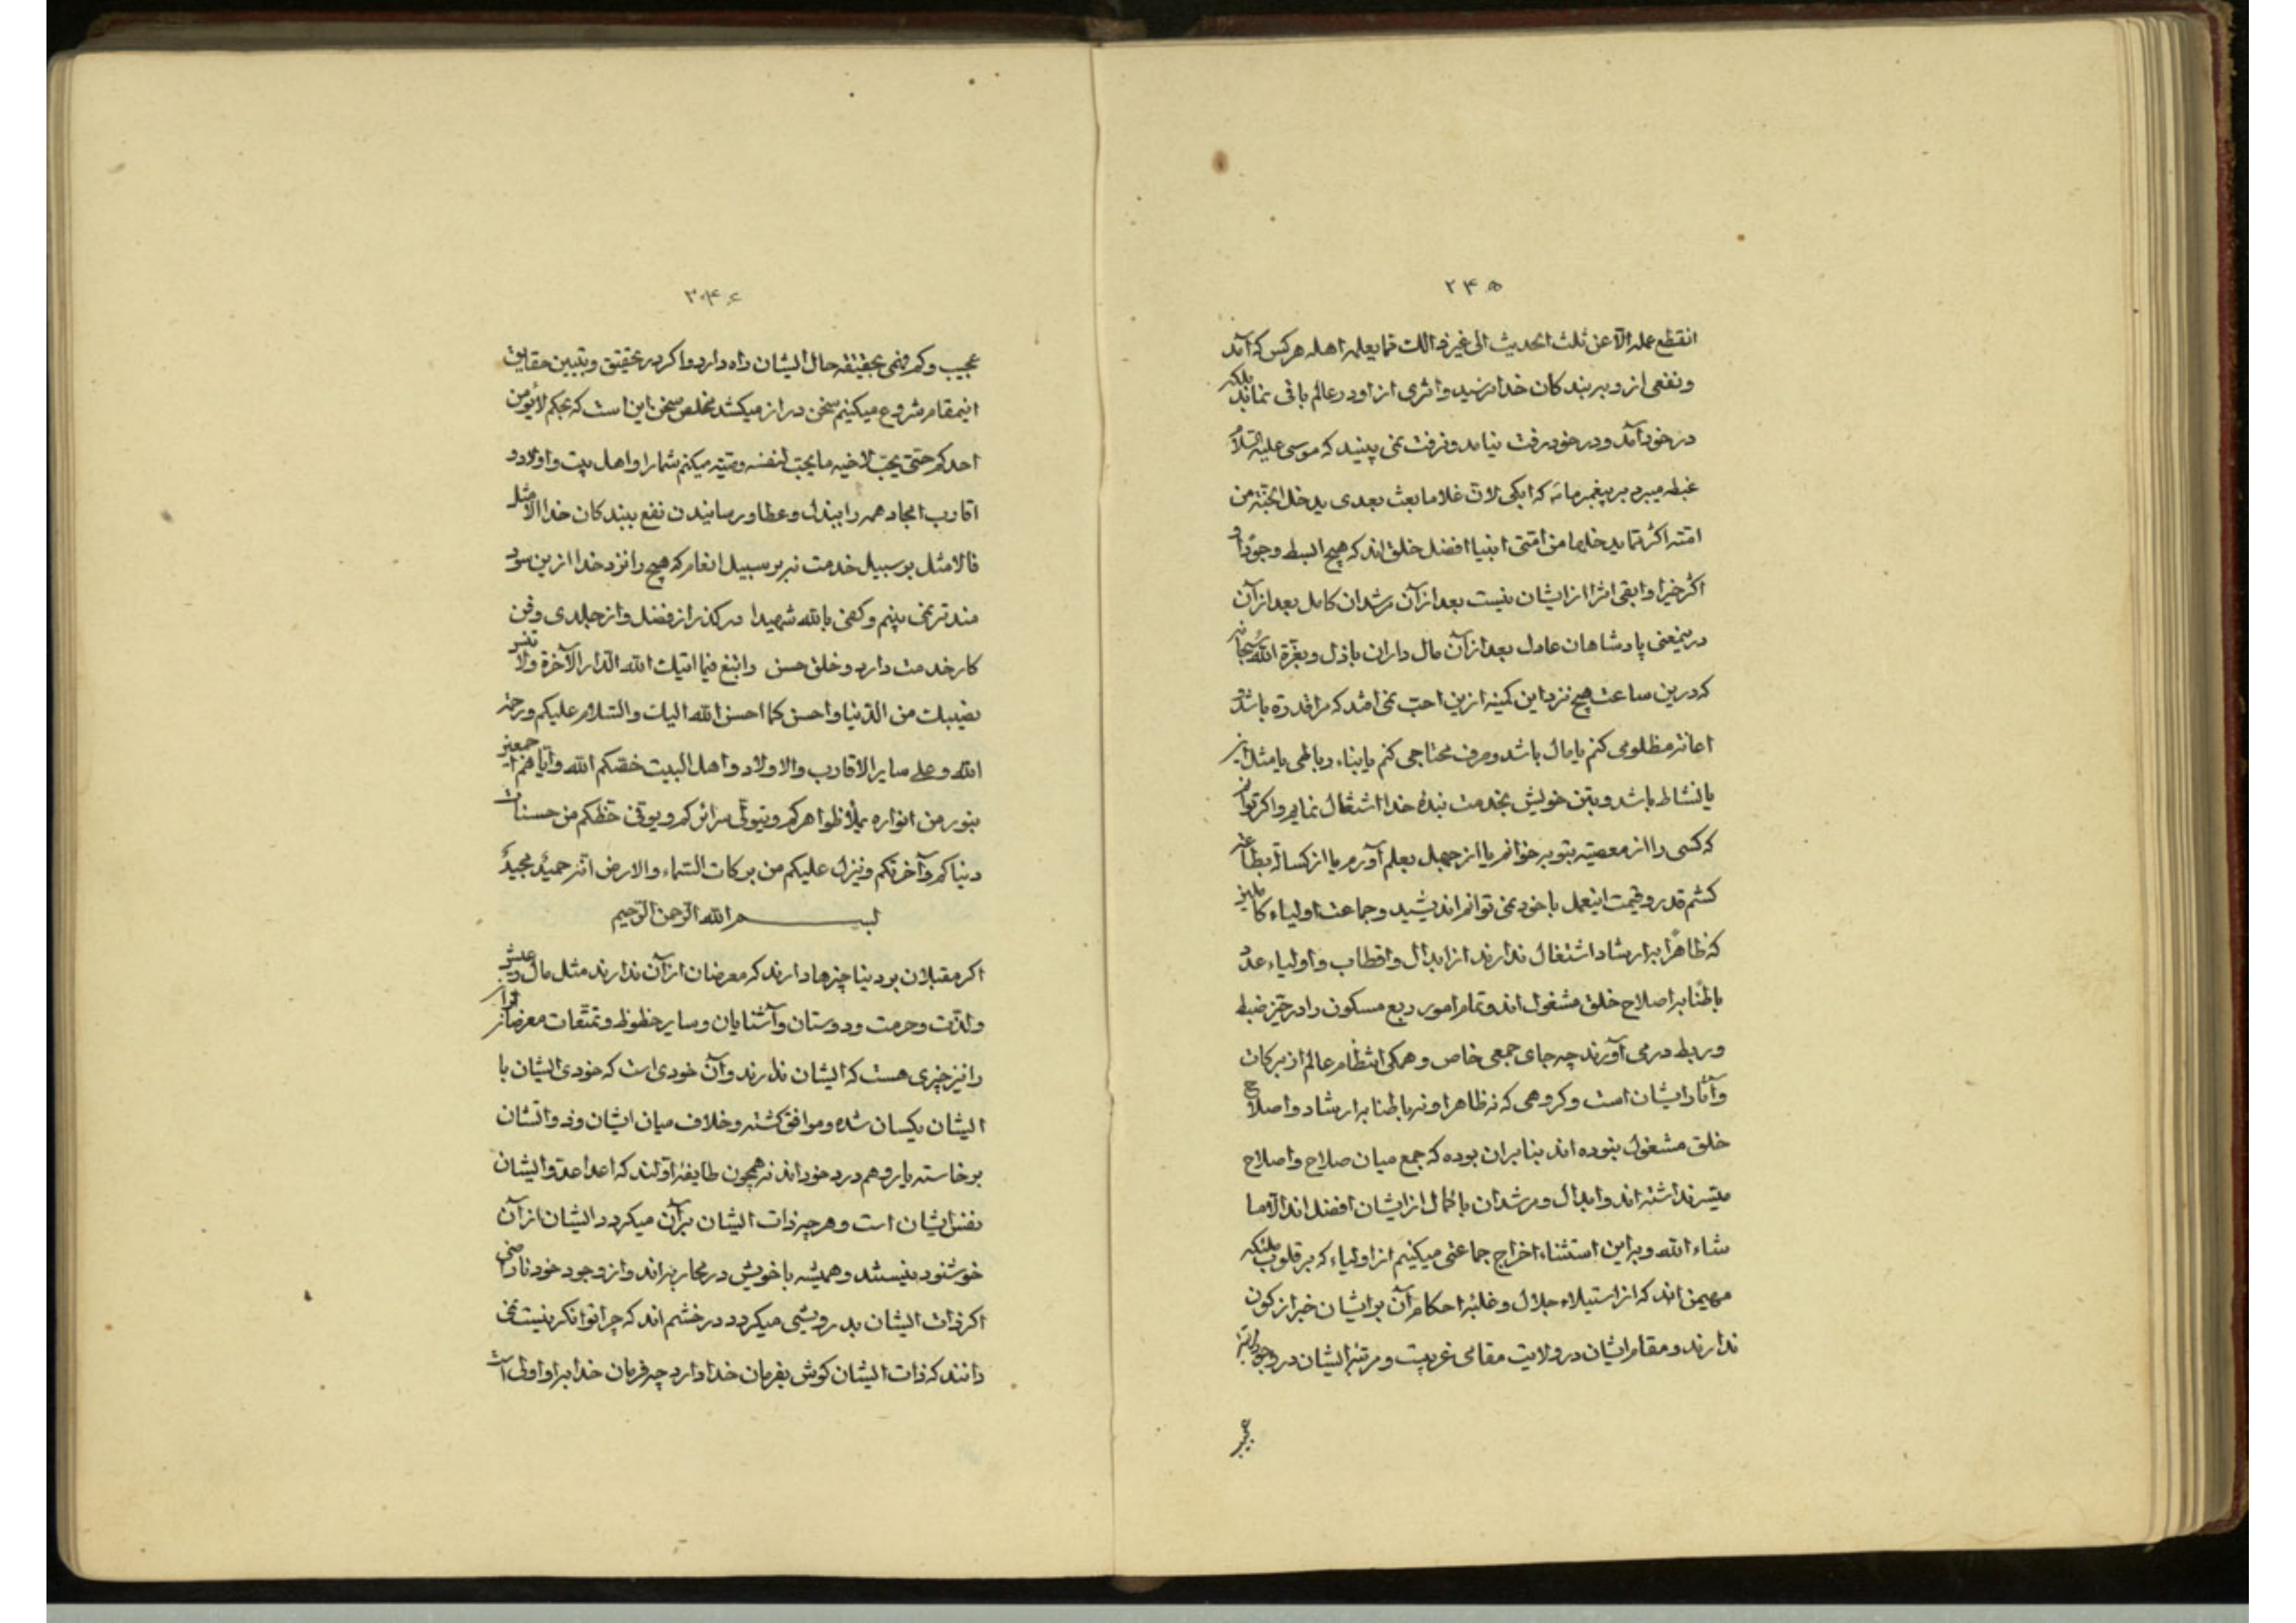 ۲۴۵
انقطع عمله الا عن ثلث الحدیث الی غیر ذالک مما یعلمه اهله هر کس که آمد
و نفعی از و ببر بندکان خدا نرسید و اثری از او در عالم باقی نماند بلکه
در خود آمد و در خود رفت نیامد و نرفت نمی بینید که موسی علیه السلام
غبطه میبرد بر پیغمبر ما که ابکی لان غلاما بعث بعدی یدخل الجنة من
امته اکثر مما یدخلها من امتی انبیا افضل خلق اند که هیچ ابسط وجودا و
اکثر خیرا و ابقی اثرا از ایشان نیست بعد از آن مرشدان کامل بعد از آن
درین معنی پادشاهان عادل بعد از آن مال داران باذل و بعزة الله سبحانه
که درین ساعت هیچ نزد این کمینه ازین احب نمی افتد که مرا قدرة باشد و
اعانة مظلومی کنم یا مال باشد و صرف محتاجی کنم یا بناء رباطی یا مثل این
یا نشاط باشد و بتن خویش بخدمت بندهٔ خدا اشتغال نمایم و اکر توانم
که کسی را از معصیة بتوبه خوانم یا از جهل بعلم آورم یا از کسالة بطاعة
کشم قدر و قیمت اینعمل با خود نمی توانم اندیشید و جماعت اولیاء کاملین
که ظاهرا بارشاد اشتغال ندارند از ابدال و اقطاب و اولیاء عدد
باطنا باصلاح خلق مشغول اند و تمام امور ربع مسکون را در حیز ضبط
و ربط در می آورند چه جای جمعی خاص و همکی انتظام عالم از برکات
و آثار ایشان است و کروهی که نه ظاهرا و نه باطنا بارشاد و اصلاح
خلق مشغول نبوده اند بنا بران بوده که جمع میان صلاح و اصلاح
میسر نداشته اند و ابدال و مرشدان با کمال از ایشان افضل اند الا ما
شاء الله و باین استثناء اخراج جماعتی میکنیم از اولیاء که بر قلوب ملئکه
مهیمن اند که از استیلاء جلال و غلبهٔ احکام آن بر ایشان خبر از کون
ندارند و مقام ایشان در ولایت مقامی غریبست و مرتبه ایشان در وجود
عجیب
۲۴۶
عجیب و کم فهمی بحقیقة حال ایشان راه دارد و اکر در تحقیق و تبیین حقایق
اینمقام شروع میکنیم سخن دراز میکشد مخلص سخن این است که بحکم لا یؤمن
احدکم حتی یحب لاخیه ما یحب لنفسه وصیة میکنم شمارا و اهل بیت و اولاد و
اقارب امجاد همه را ببذل و عطا و رسانیدن نفع ببندکان خدا الامثل
فالامثل بر سبیل خدمت نه بر سبیل انعام که هیچ را نزد خدا ازین سود
مندتر نمی بینم و کفی بالله شهیدا در کذر از فضل و از جلدی و فن
کار خدمت دارد و خلق حسن وابتغ فیما اتیک الله الدار الآخرة ولا تنس
نصیبک من الدنیا واحسن کما احسن الله الیک والسلام علیکم ورحمة
الله وعلی سایر الاقارب والاولاد واهل البیت خصکم الله وایاهم اجمعین
بنور من انواره یملأ ظواهرکم ویتولی سرائرکم ویوفی حظکم من حسنات
دنیاکم وآخرتکم وینزل علیکم من برکات السماء والارض انه حمید مجید
بسم الله الرحمن الرحیم
اکر مقبلان بر دنیا چیزها دارند که معرضان از آن ندارند مثل مال و عیش
و لذت و حرمت و دوستان و آشنایان و سایر حظوظ و تمتعات معرضان از
را نیز چیزی هست که ایشان ندارند و آن خودی است که خودی ایشان با
ایشان یکسان شده و موافق کشته و خلاف میان ایشان و ذواتشان
برخاسته یار و هم درد خود اند نه همچون طایفهٔ اولند که اعدا عدو ایشان
نفس ایشان است و هر چه ذات ایشان بر آن میکردد ایشان از آن
خوشنود نیستند و همیشه با خویش در محاربه اند و از وجود خود ناراضی
اکر ذات ایشان بدرویشی میکردد در خشم اند که چرا توانکر نیست نمی
دانند که ذات ایشان کوش بفرمان خدا دارد چه فرمان خدا برا و اولی است